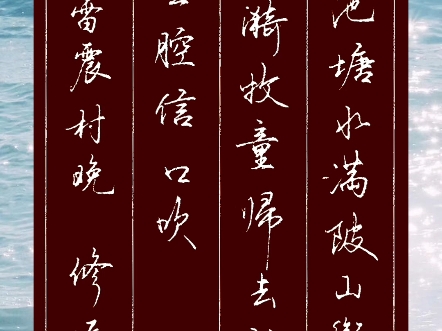 池塘水满陂山
漪牧童帰去
腔信口吹
雷震村晚 修